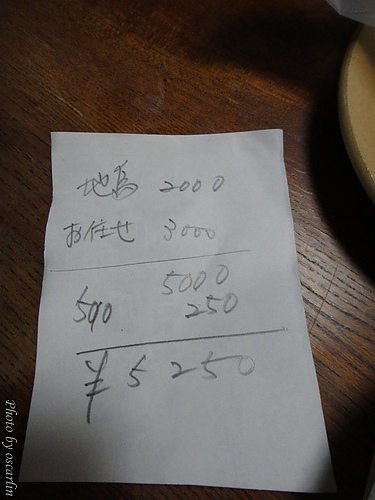 地鳥 2000
お任せ 3000
5000
5% 250
¥ 5250
Photo by oscarlin